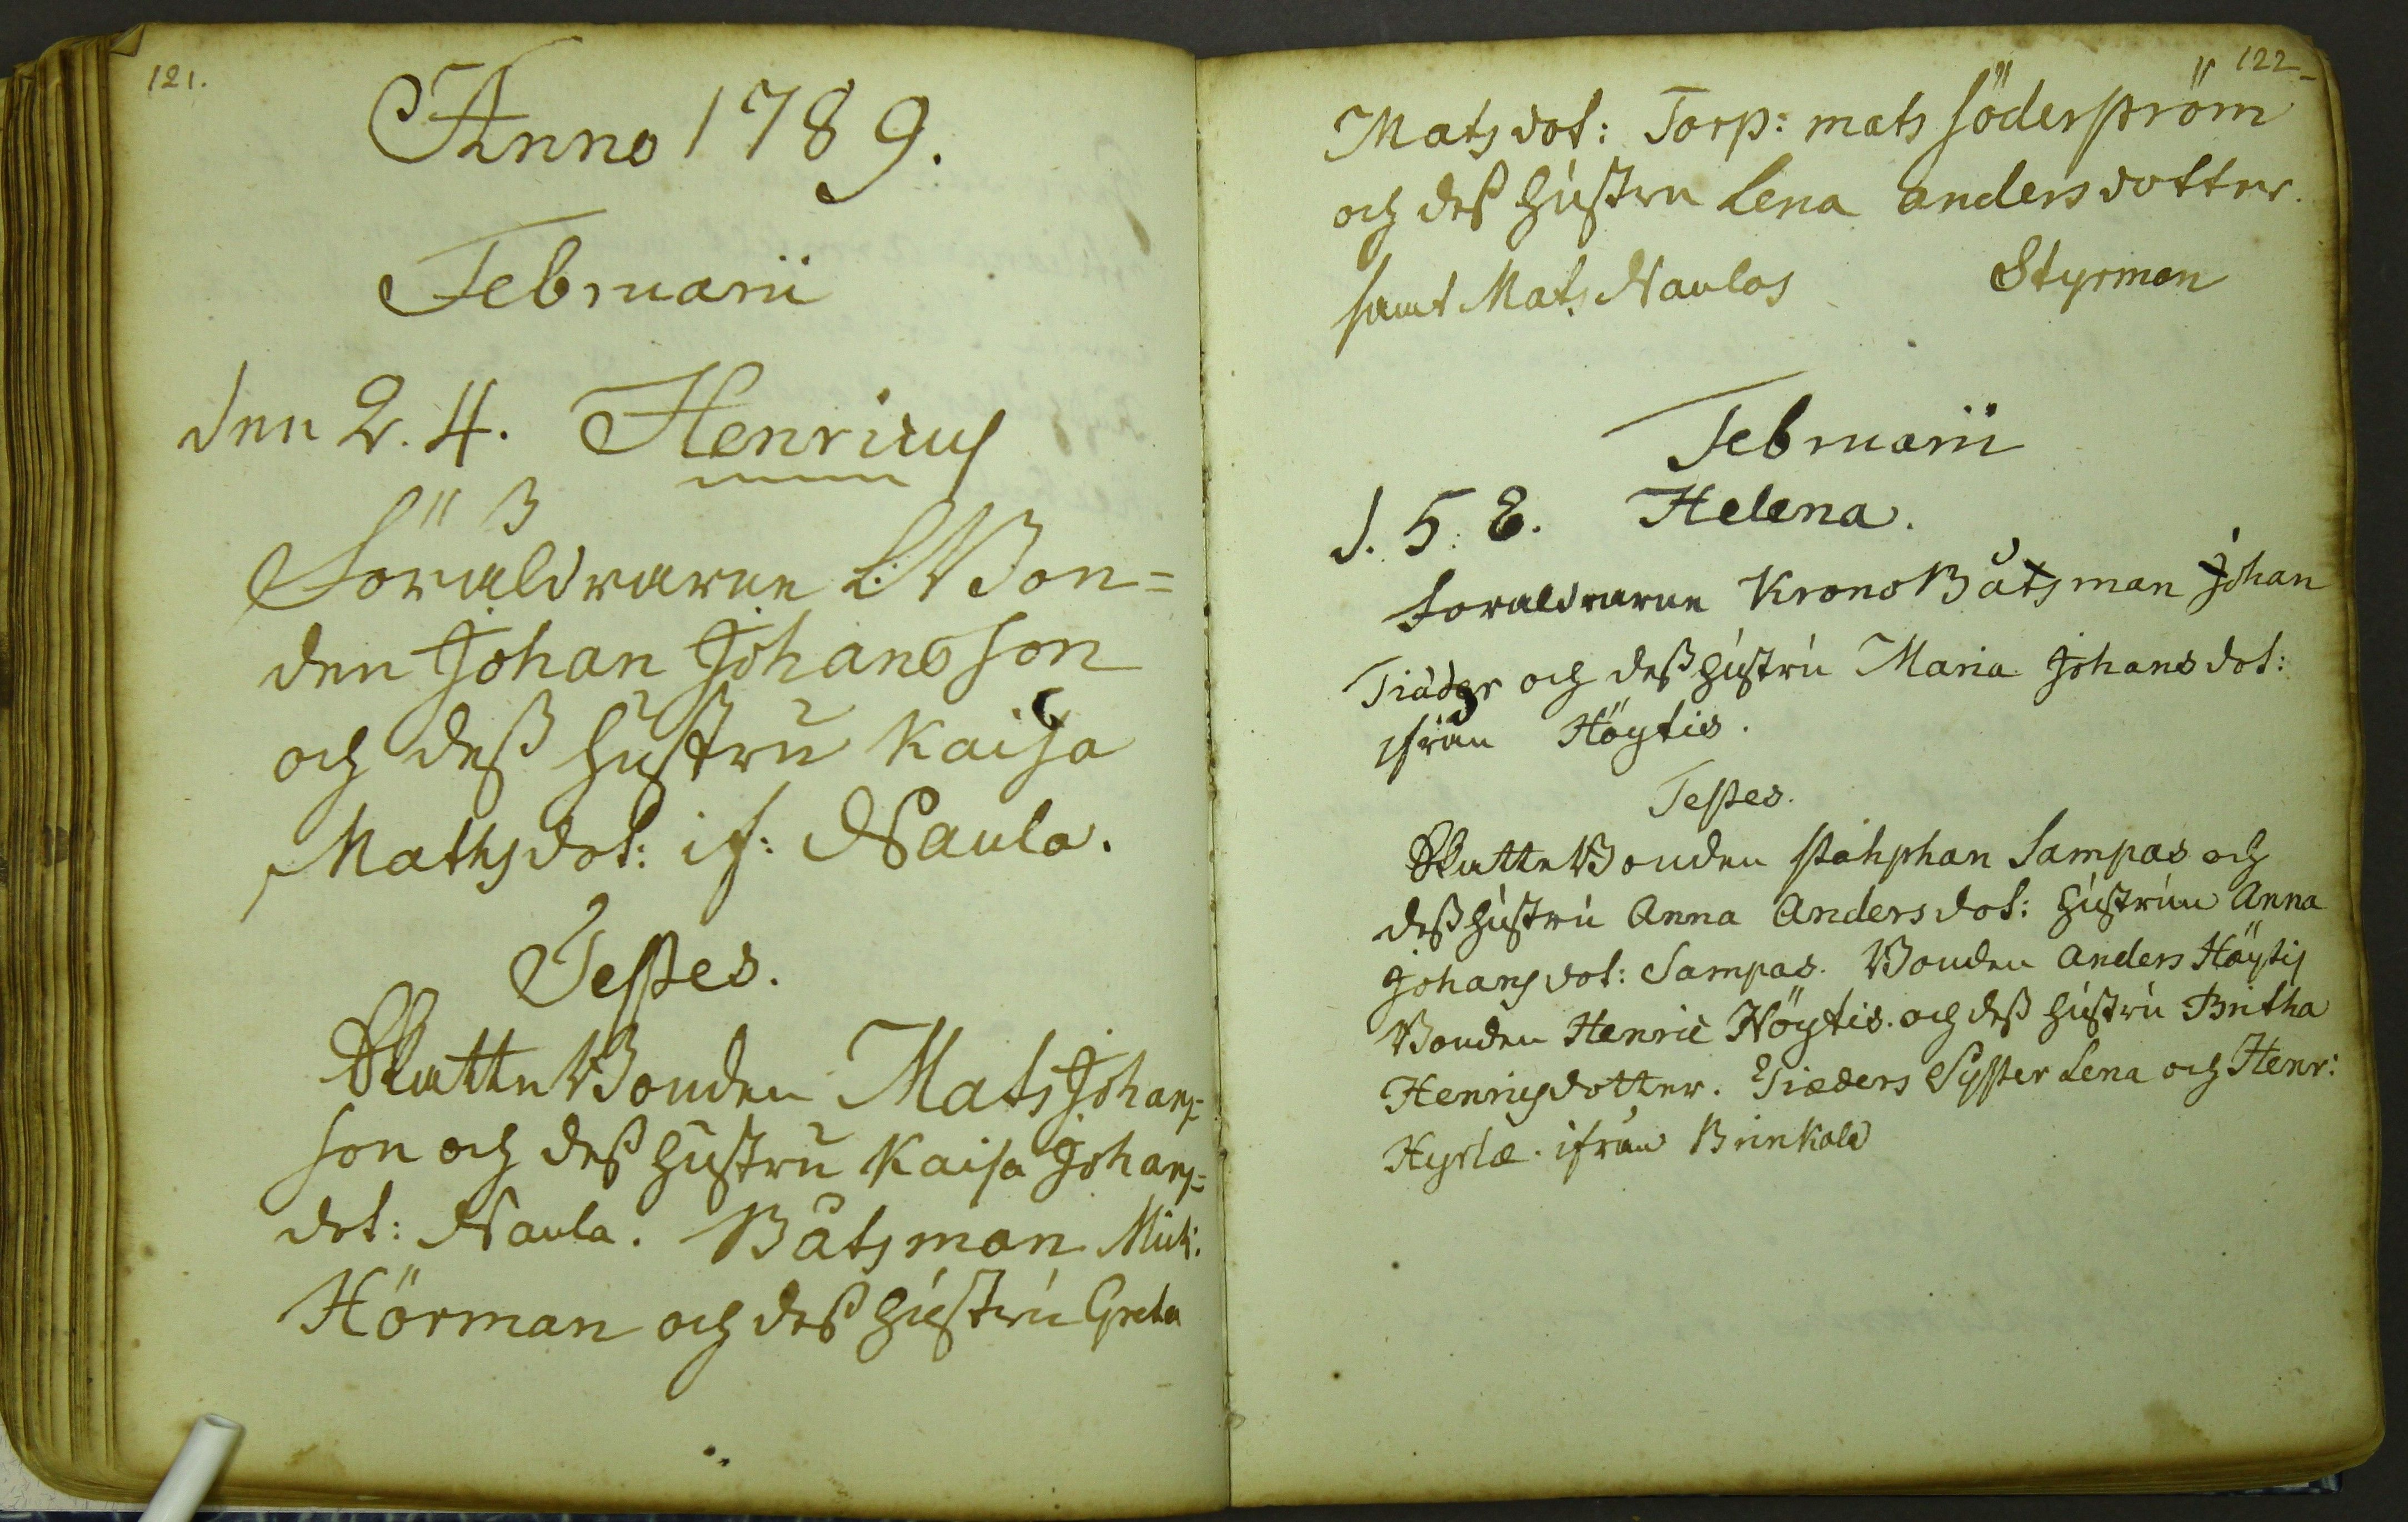 121.
Anno 1789.
Februarii
den 2. 4. Henricus
Föräldrarne L: Bon=
den Johan Johansson
och dess hustru Kaisa
Mathsdot: if: Naula.
Testes.
Skatte Bonden Mats Johans=
son och dess hustru Kaisa Johans=
dot: Naula. Båtsman Mich:
Hörman och dess hustru Greta
122
Matsdot: Torp: mats söderström
och dess hustru Lena andersdotter.
samt Mats Naulas Styrman
Februarii
d. 5. 8. Helena.
foraldrarne Krono Båtsman Johan
Tiäder och dess hustru Maria Johansdot:
ifrån Höytis.
Testes.
Skatte Bonden stahphan Sampas och
dess hustru Anna Andersdot: hustrun Anna
Johansdot: Sampas. Bonden Anders Höytis
Bonden Henric Höytis. och dess hustru Britha
Henricsdotter. Tiæders Syster Lena och Henr:
Hyrlæ. ifrån Brinkala